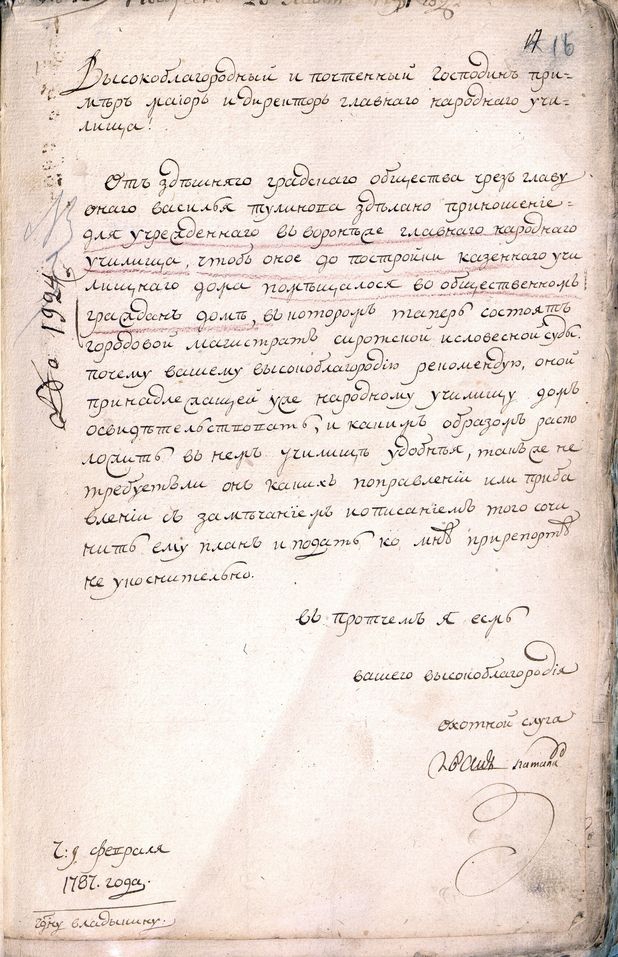 17 16
Высокоблагородный и почтенный господинъ при-
мѣръ маіоръ и директоръ главнаго народнаго учи-
лища!
Отъ здѣшняго градскаго общества чрезъ главу
онаго василья тулинова здѣлано приношеніе-
для учрежденнаго въ воронѣже главнаго народнаго
училища, чтобъ оное до постройки казеннаго учи
лищнаго дома помѣщалося во общественномъ
гражданъ домѣ, въ которомъ таперь состоятъ
городовой магистратъ сиротской исловесной суды.
почему вашему высокоблагородію рекомендую, оной
принадлежащей уже народному училищу домъ
освидѣтельствовать, и какимъ образомъ распо
ложить въ немъ училищѣ удобнѣя, такъже не
требуетъли онъ какихъ поправленіи или приба
вленіи съ замѣчаніемъ иописаніемъ того сочи
нить ему планъ и подать ко мнѣ прирепортѣ
не укоснительно.
въ протчемъ я есмь
вашего высокоблагородія
охотной слуга
Ч: 9 февраля
1787. года.
гдну владыкину.
До 1924